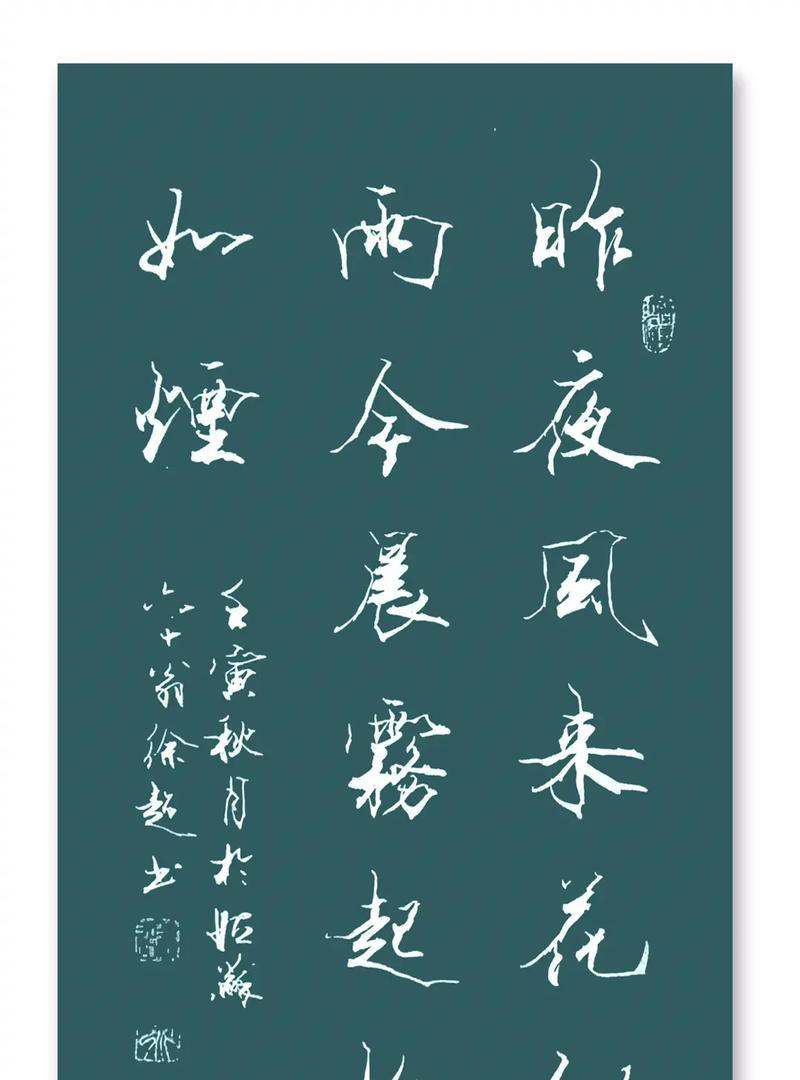 昨夜風来花
雨今晨霧起
如煙
壬寅秋月於姑蘇
六十翁徐超书